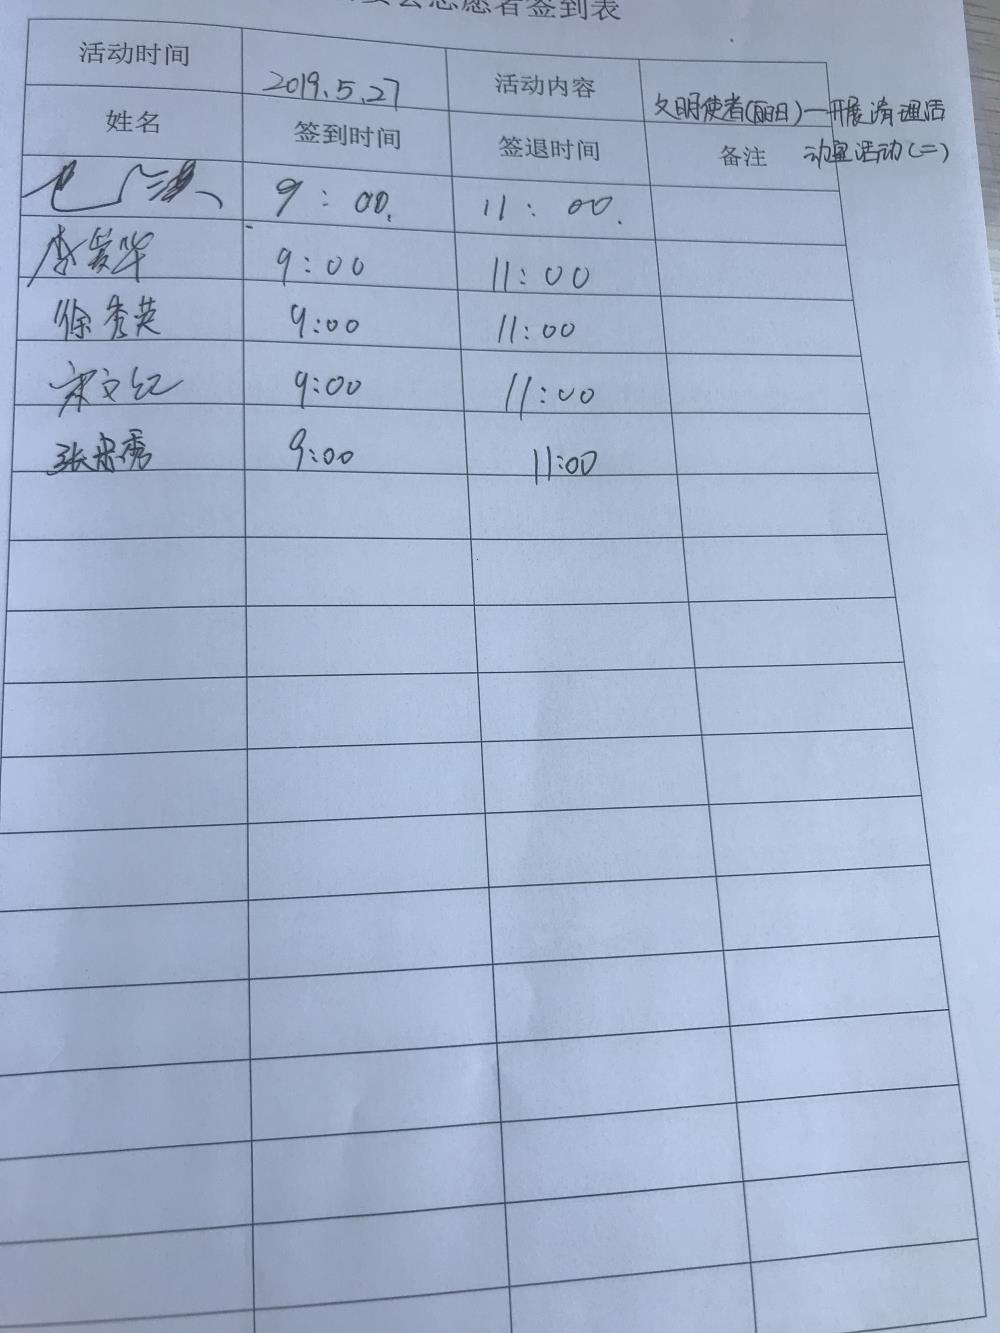 会志愿者签到表
活动时间 2019.5.27 活动内容 文明使者(阳日)一开展清理活
动室活动(二)
姓名 签到时间 签退时间 备注
9:00. 11:00.
李爱华 9:00 11:00
徐秀英 9:00 11:00
宋文红 9:00 11:00
张秀 9:00 11:00